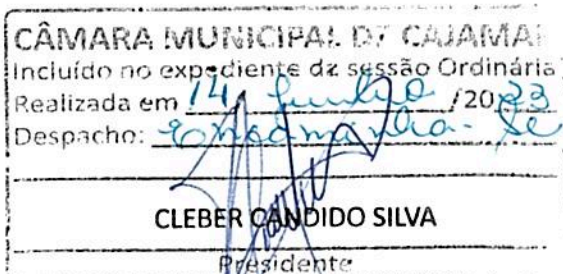 CÂMARA MUNICIPAL DE CAJAMAR
Incluído no expediente da sessão Ordinária
Realizada em 14 Junho /2023
Despacho: Encaminha-se
CLEBER CANDIDO SILVA
Presidente